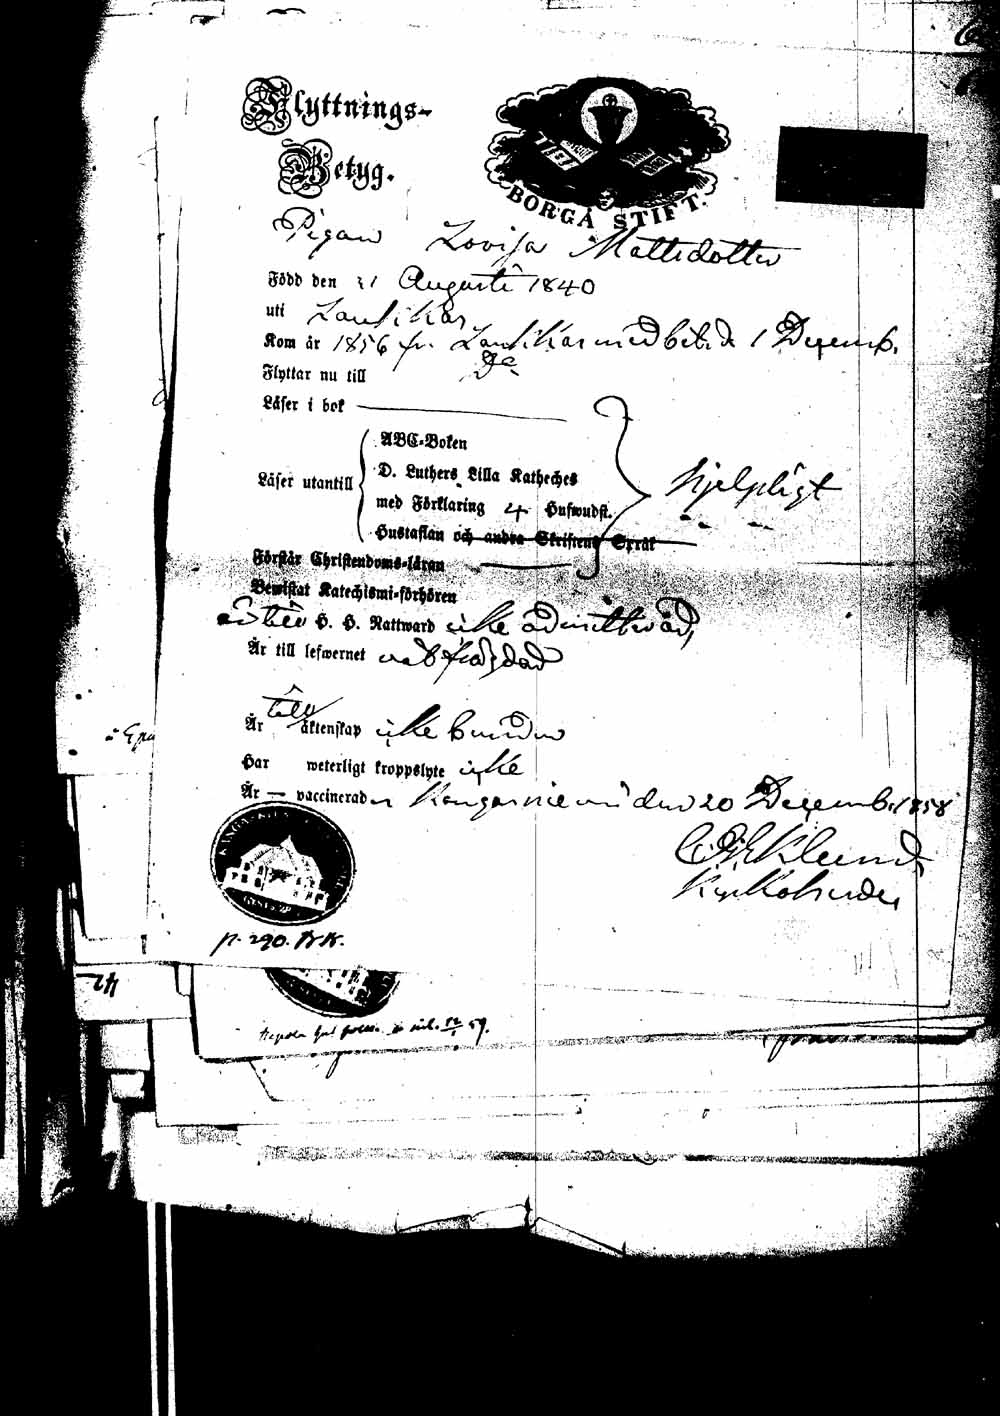 Flyttnings-
Betyg.
BORGÅ STIFT.
Pigan Lovisa Mattsdotter
Född den 31 Augusti 1840
uti Lauikas
Kom år 1856 fr. med bet. d. 1 Decemb.
Flyttar nu till
Läser i bok
Läser utantill
ABC-Boken
D. Luthers Lilla Katheches
med Förklaring 4 Hufwudst.
Hustaflan och andra Skriftens Språk
hjelpligt
Förstår Christendoms-läran
Bewistat Katechismi-förhören
H. H. Nattward icke admitterad,
Är till lefwernet
Är till äktenskap icke bunden
Har weterligt kroppslyte icke
Är — vaccinerad Kangasniemi den 20 Decemb. 1858
Eklund
Kyrkoherde
p. 290. KK.
42